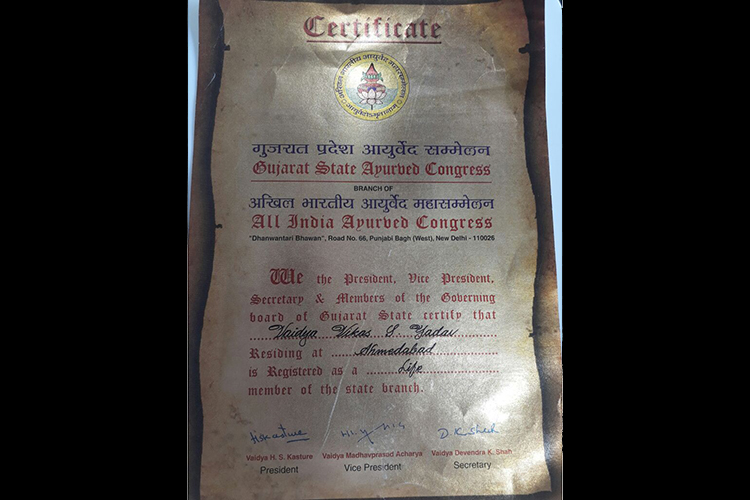 Certificate
अखिल भारतीय आयुर्वेद महासम्मेलन
गुजरात प्रदेश आयुर्वेद सम्मेलन
Gujarat State Ayurved Congress
BRANCH OF
अखिल भारतीय आयुर्वेद महासम्मेलन
All India Ayurved Congress
"Dhanwantari Bhawan", Road No. 66, Punjabi Bagh (West), New Delhi - 110026
We the President, Vice President,
Secretary & Members of the Governing
board of Gujarat State certify that
Vaidya Vikas S. Yadav
Residing at Ahmedabad
is Registered as a Life
member of the state branch.
D.K.Shah
Vaidya H. S. Kasture Vaidya Madhavprasad Acharya Vaidya Devendra K. Shah
President Vice President Secretary